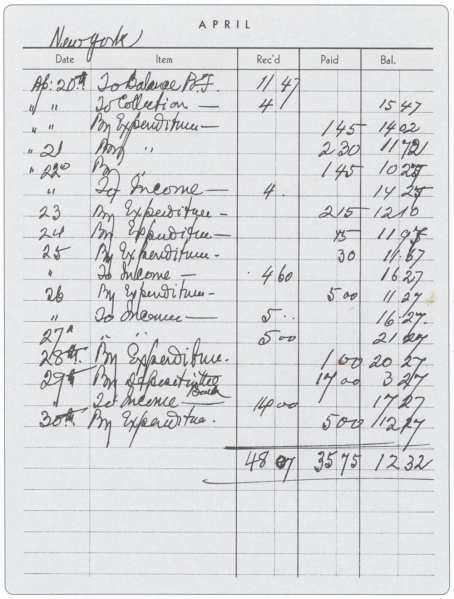 APRIL
New York
Date Item Rec'd Paid Bal.
Ap: 20th To Balance B.F. 11 47
" " To Collection — 4 15 47
" " By Expenditure — 1 45 14 02
" 21 " 2 30 11 72
" 22 By " 1 45 10 27
" To Income — 4. 14 25
23 By Expenditure — 2 15 12 10
24 By Expenditure — 15
25 By Expenditure — 30
" To Income — 4 60 16 27
26 By Expenditure - 5 00 11 27
" To Income — 5 .. 16 27
27th " " 5 00 21 27
28th By Expenditure. 1 00 20 27
29th By Deposit in the Bank 17 00 3 27
" To Income — 14 00 17 27
30th By Expenditure. 5 00 12 27
48 07 35 75 12 32